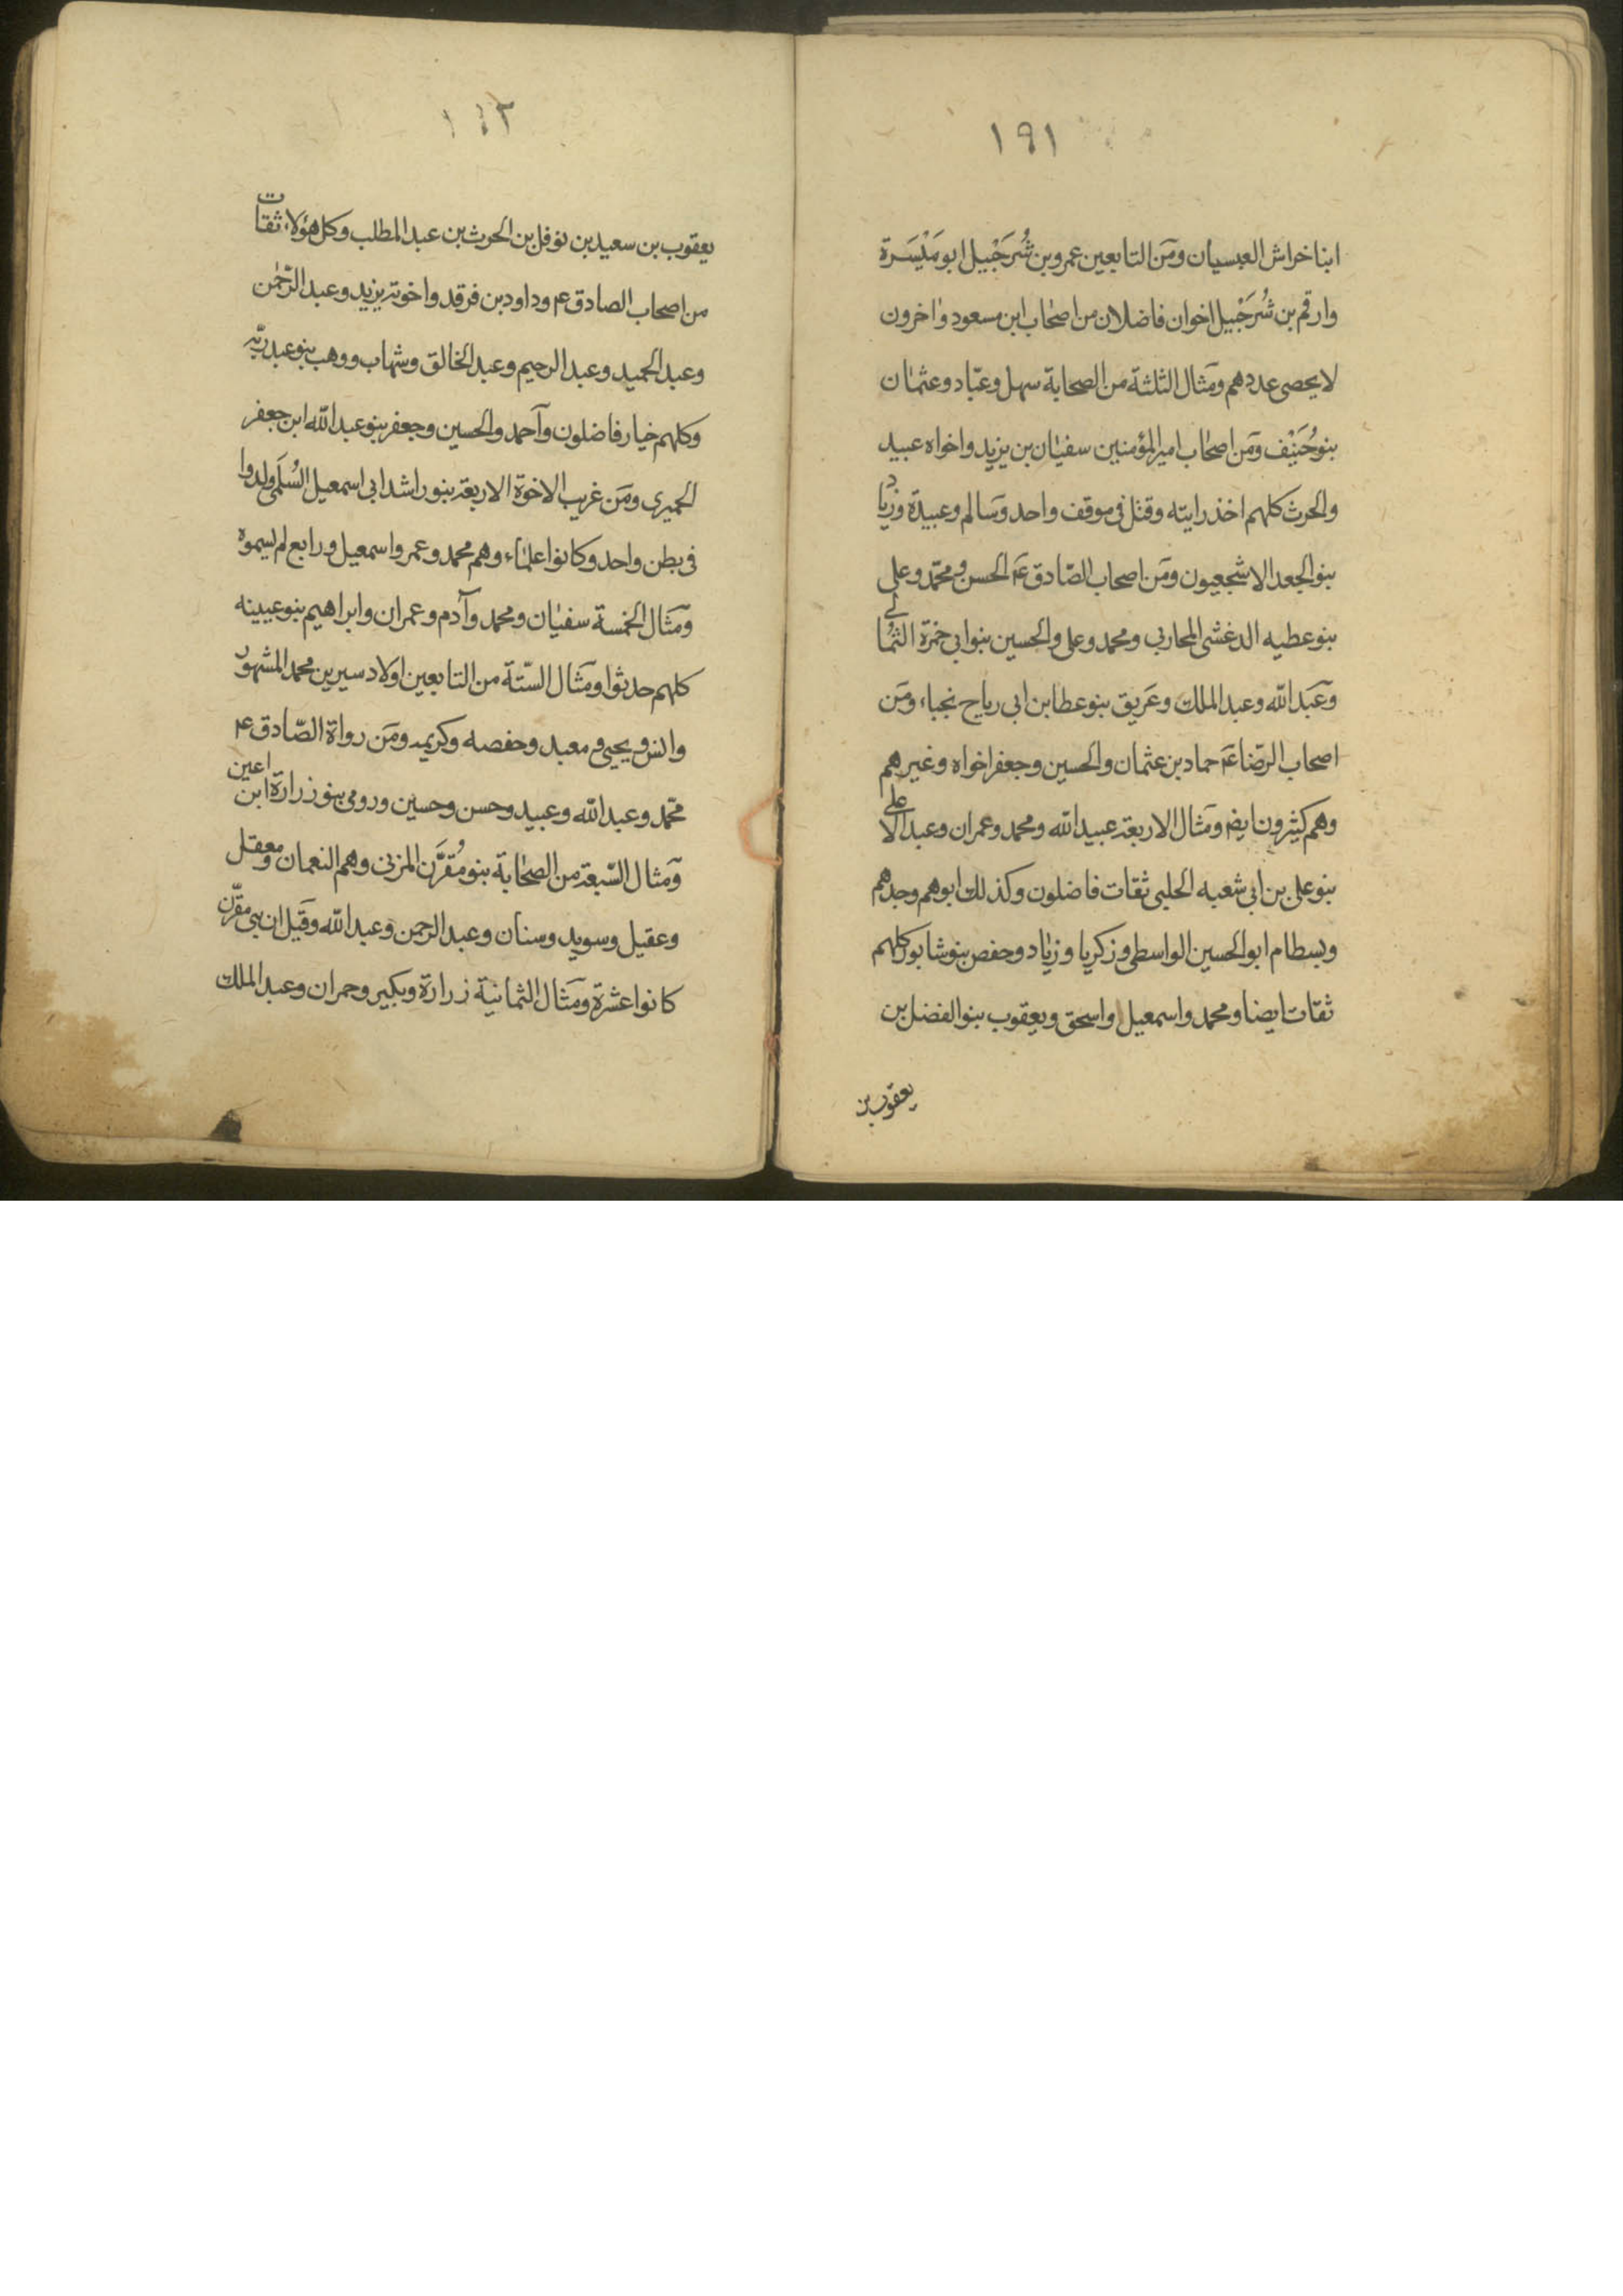 ١٩١
ابنا خراش العبسيان ومن التابعين عمرو بن شُرَحْبيل ابو مَيْسَرة
وارقم بن شُرَحْبيل اخوان فاضلان من اصحاب ابن مسعود واخرون
لا يحصى عددهم ومثال الثلثة من الصحابة سهل وعبّاد وعثمان
بنو حُنَيْف ومن اصحاب امير المؤمنين سفيان بن يزيد واخواه عبيد
والحرث كلهم اخذ رايته وقتل فى موقف واحد وسالم وعبيدة وزياد
بنو الجعد الاشجعيون ومن اصحاب الصّادق ع الحسن ومحمّد وعلى
بنو عطيه الدغشى المحاربى ومحمد وعلى والحسين بنو ابى حمزة الثمالى
وعبد الله وعبد الملك وعريق بنو عطا بن ابى رياح نجباء ومن
اصحاب الرضا ع حماد بن عثمان والحسين وجعفر اخواه وغيرهم
وهم كثيرون ايضم ومثال الاربعة عبيد الله ومحمد وعمران وعبد الاعلى
بنو على بن ابى شعبه الحلبى ثقات فاضلون وكذلك ابوهم وجدهم
وبسطام ابو الحسين الواسطى وزكريا وزياد وحفص بنو شابور كلهم
ثقات ايضا ومحمد واسمعيل واسحق ويعقوب بنو الفضل بن
يعقوب بن
١٩٢
يعقوب بن سعيد بن نوفل بن الحرث بن عبد المطلب وكل هؤلاء ثقات
من اصحاب الصادق ع وداود بن فرقد واخوته يزيد وعبد الرّحمن
وعبد الحميد وعبد الرحيم وعبد الخالق وشهاب ووهب بنو عبد ربّه
وكلهم خيار فاضلون وآحمد والحسين وجعفر بنو عبد الله ابن جعفر
الحميرى ومن غريب الاخوة الاربعة بنو راشد ابى اسمعيل السُلَمى ولدوا
فى بطن واحد وكانوا علماء وهم محمد وعمر واسمعيل ورابع لم يسموه
ومثال الخمسة سفيان ومحمد وآدم وعمران وابراهيم بنو عيينه
كلهم حدثوا ومثال الستّة من التابعين اولاد سيرين محمد المشهور
وانس ويحيى ومعبد وحفصه وكريمه ومن رواة الصّادق ع
محمّد وعبد الله وعبيد وحسن وحسين ورومى بنو زرارة ابن اعين
ومثال السّبعة من الصحابة بنو مُقرَّن المزنى وهم النعمان ومعقل
وعقيل وسويد وسنان وعبد الرحمن وعبد الله وقيل ان بنى مقرّن
كانوا عشرة ومثال الثمانية زرارة وبكير وحمران وعبد الملك